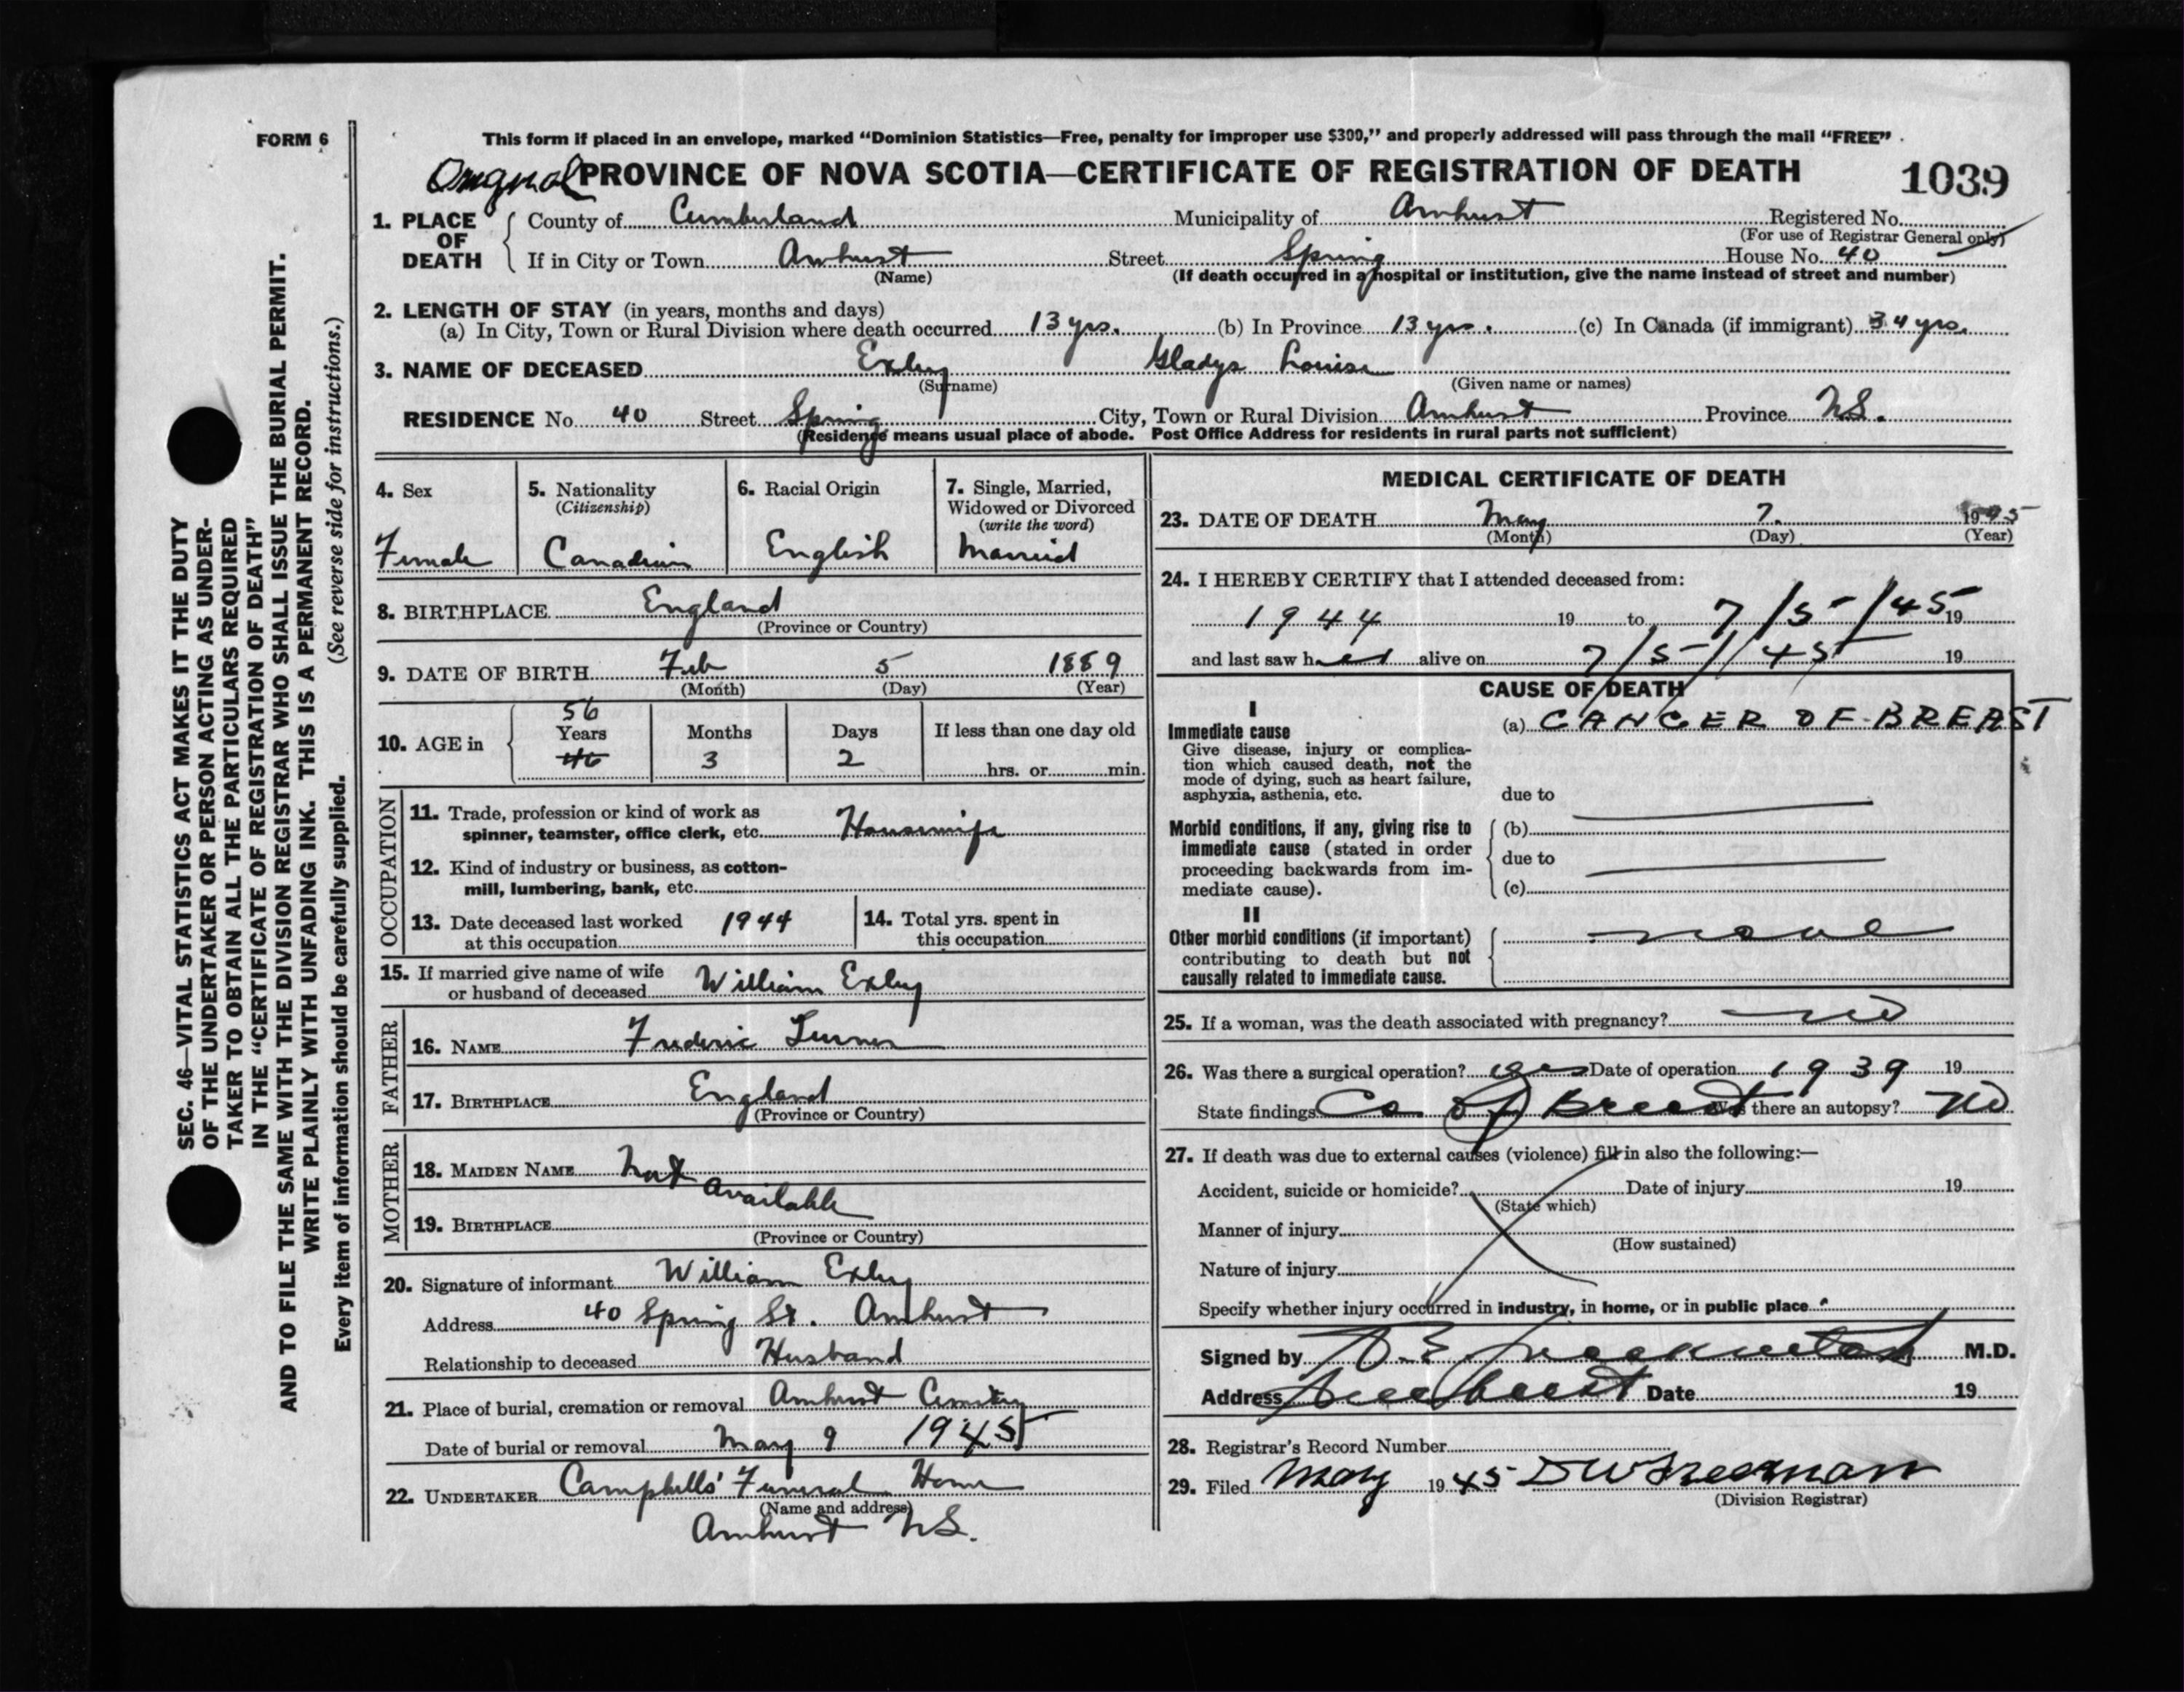 FORM 6
This form if placed in an envelope, marked “Dominion Statistics—Free, penalty for improper use $300,” and properly addressed will pass through the mail “FREE”.
Original PROVINCE OF NOVA SCOTIA—CERTIFICATE OF REGISTRATION OF DEATH 1039
1. PLACE OF DEATH County of Cumberland Municipality of Amherst Registered No.
(For use of Registrar General only)
If in City or Town Amherst Street Spring House No. 40
(Name) (If death occurred in a hospital or institution, give the name instead of street and number)
2. LENGTH OF STAY (in years, months and days)
(a) In City, Town or Rural Division where death occurred 13 yrs. (b) In Province 13 yrs. (c) In Canada (if immigrant) 34 yrs.
3. NAME OF DECEASED Exley Gladys Louise
(Surname) (Given name or names)
RESIDENCE No. 40 Street Spring City, Town or Rural Division Amherst Province N.S.
(Residence means usual place of abode. Post Office Address for residents in rural parts not sufficient)
4. Sex
Female
5. Nationality
(Citizenship)
Canadian
6. Racial Origin
English
7. Single, Married,
Widowed or Divorced
(write the word)
Married
8. BIRTHPLACE England
(Province or Country)
9. DATE OF BIRTH Feb 5 1889
(Month) (Day) (Year)
10. AGE in
56
Years Months Days If less than one day old
46 3 2 hrs. or min.
OCCUPATION
11. Trade, profession or kind of work as
spinner, teamster, office clerk, etc. Housewife
12. Kind of industry or business, as cotton-
mill, lumbering, bank, etc.
13. Date deceased last worked 1944
at this occupation
14. Total yrs. spent in
this occupation
15. If married give name of wife
or husband of deceased William Exley
FATHER
16. NAME Frederic Turner
17. BIRTHPLACE England
(Province or Country)
MOTHER
18. MAIDEN NAME Not
available
19. BIRTHPLACE
(Province or Country)
20. Signature of informant William Exley
Address 40 Spring St. Amherst
Relationship to deceased Husband
21. Place of burial, cremation or removal Amherst Cemetery
Date of burial or removal May 9 1945
22. UNDERTAKER Campbells' Funeral Home
(Name and address)
Amherst N.S.
MEDICAL CERTIFICATE OF DEATH
23. DATE OF DEATH May 7. 1945
(Month) (Day) (Year)
24. I HEREBY CERTIFY that I attended deceased from:
1944 19 to 7/5/45 19
and last saw her alive on 7/5/45 19
CAUSE OF DEATH
I
Immediate cause
Give disease, injury or complica-
tion which caused death, not the
mode of dying, such as heart failure,
asphyxia, asthenia, etc.
(a) CANCER OF BREAST
due to
Morbid conditions, if any, giving rise to
immediate cause (stated in order
proceeding backwards from im-
mediate cause).
(b)
due to
(c)
II
Other morbid conditions (if important)
contributing to death but not
causally related to immediate cause.
none
25. If a woman, was the death associated with pregnancy? no
26. Was there a surgical operation? yes Date of operation 1939 19
State findings Ca of Breast Was there an autopsy? No
27. If death was due to external causes (violence) fill in also the following:—
Accident, suicide or homicide? Date of injury 19
(State which)
Manner of injury
(How sustained)
Nature of injury
Specify whether injury occurred in industry, in home, or in public place
Signed by M.D.
Address Amherst Date 19
28. Registrar's Record Number
29. Filed May 1945
(Division Registrar)
SEC. 46—VITAL STATISTICS ACT MAKES IT THE DUTY
OF THE UNDERTAKER OR PERSON ACTING AS UNDER-
TAKER TO OBTAIN ALL THE PARTICULARS REQUIRED
IN THE “CERTIFICATE OF REGISTRATION OF DEATH”
AND TO FILE THE SAME WITH THE DIVISION REGISTRAR WHO SHALL ISSUE THE BURIAL PERMIT.
WRITE PLAINLY WITH UNFADING INK. THIS IS A PERMANENT RECORD.
(See reverse side for instructions.)
Every item of information should be carefully supplied.